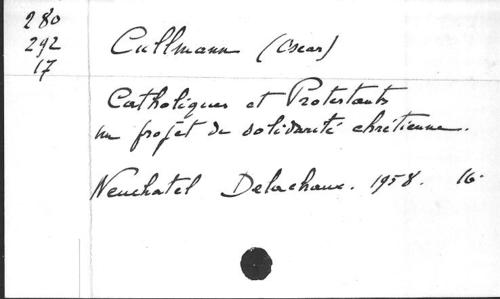 280
292
17
Cullmann (Oscar)
Catholiques et Protestants
un projet de solidarité chrétienne.
Neuchatel Delachaux. 1958. 16.